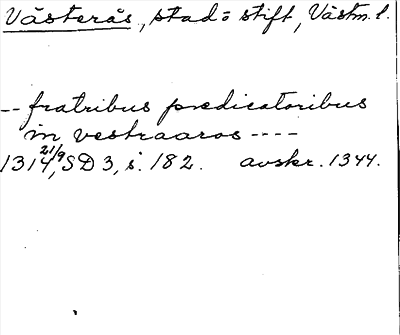 Västerås, stad o stift, Västm. l.
-- fratribus predicatoribus
in vestraaros ----
1314 21/9, SD 3, s. 182. avskr. 1344.